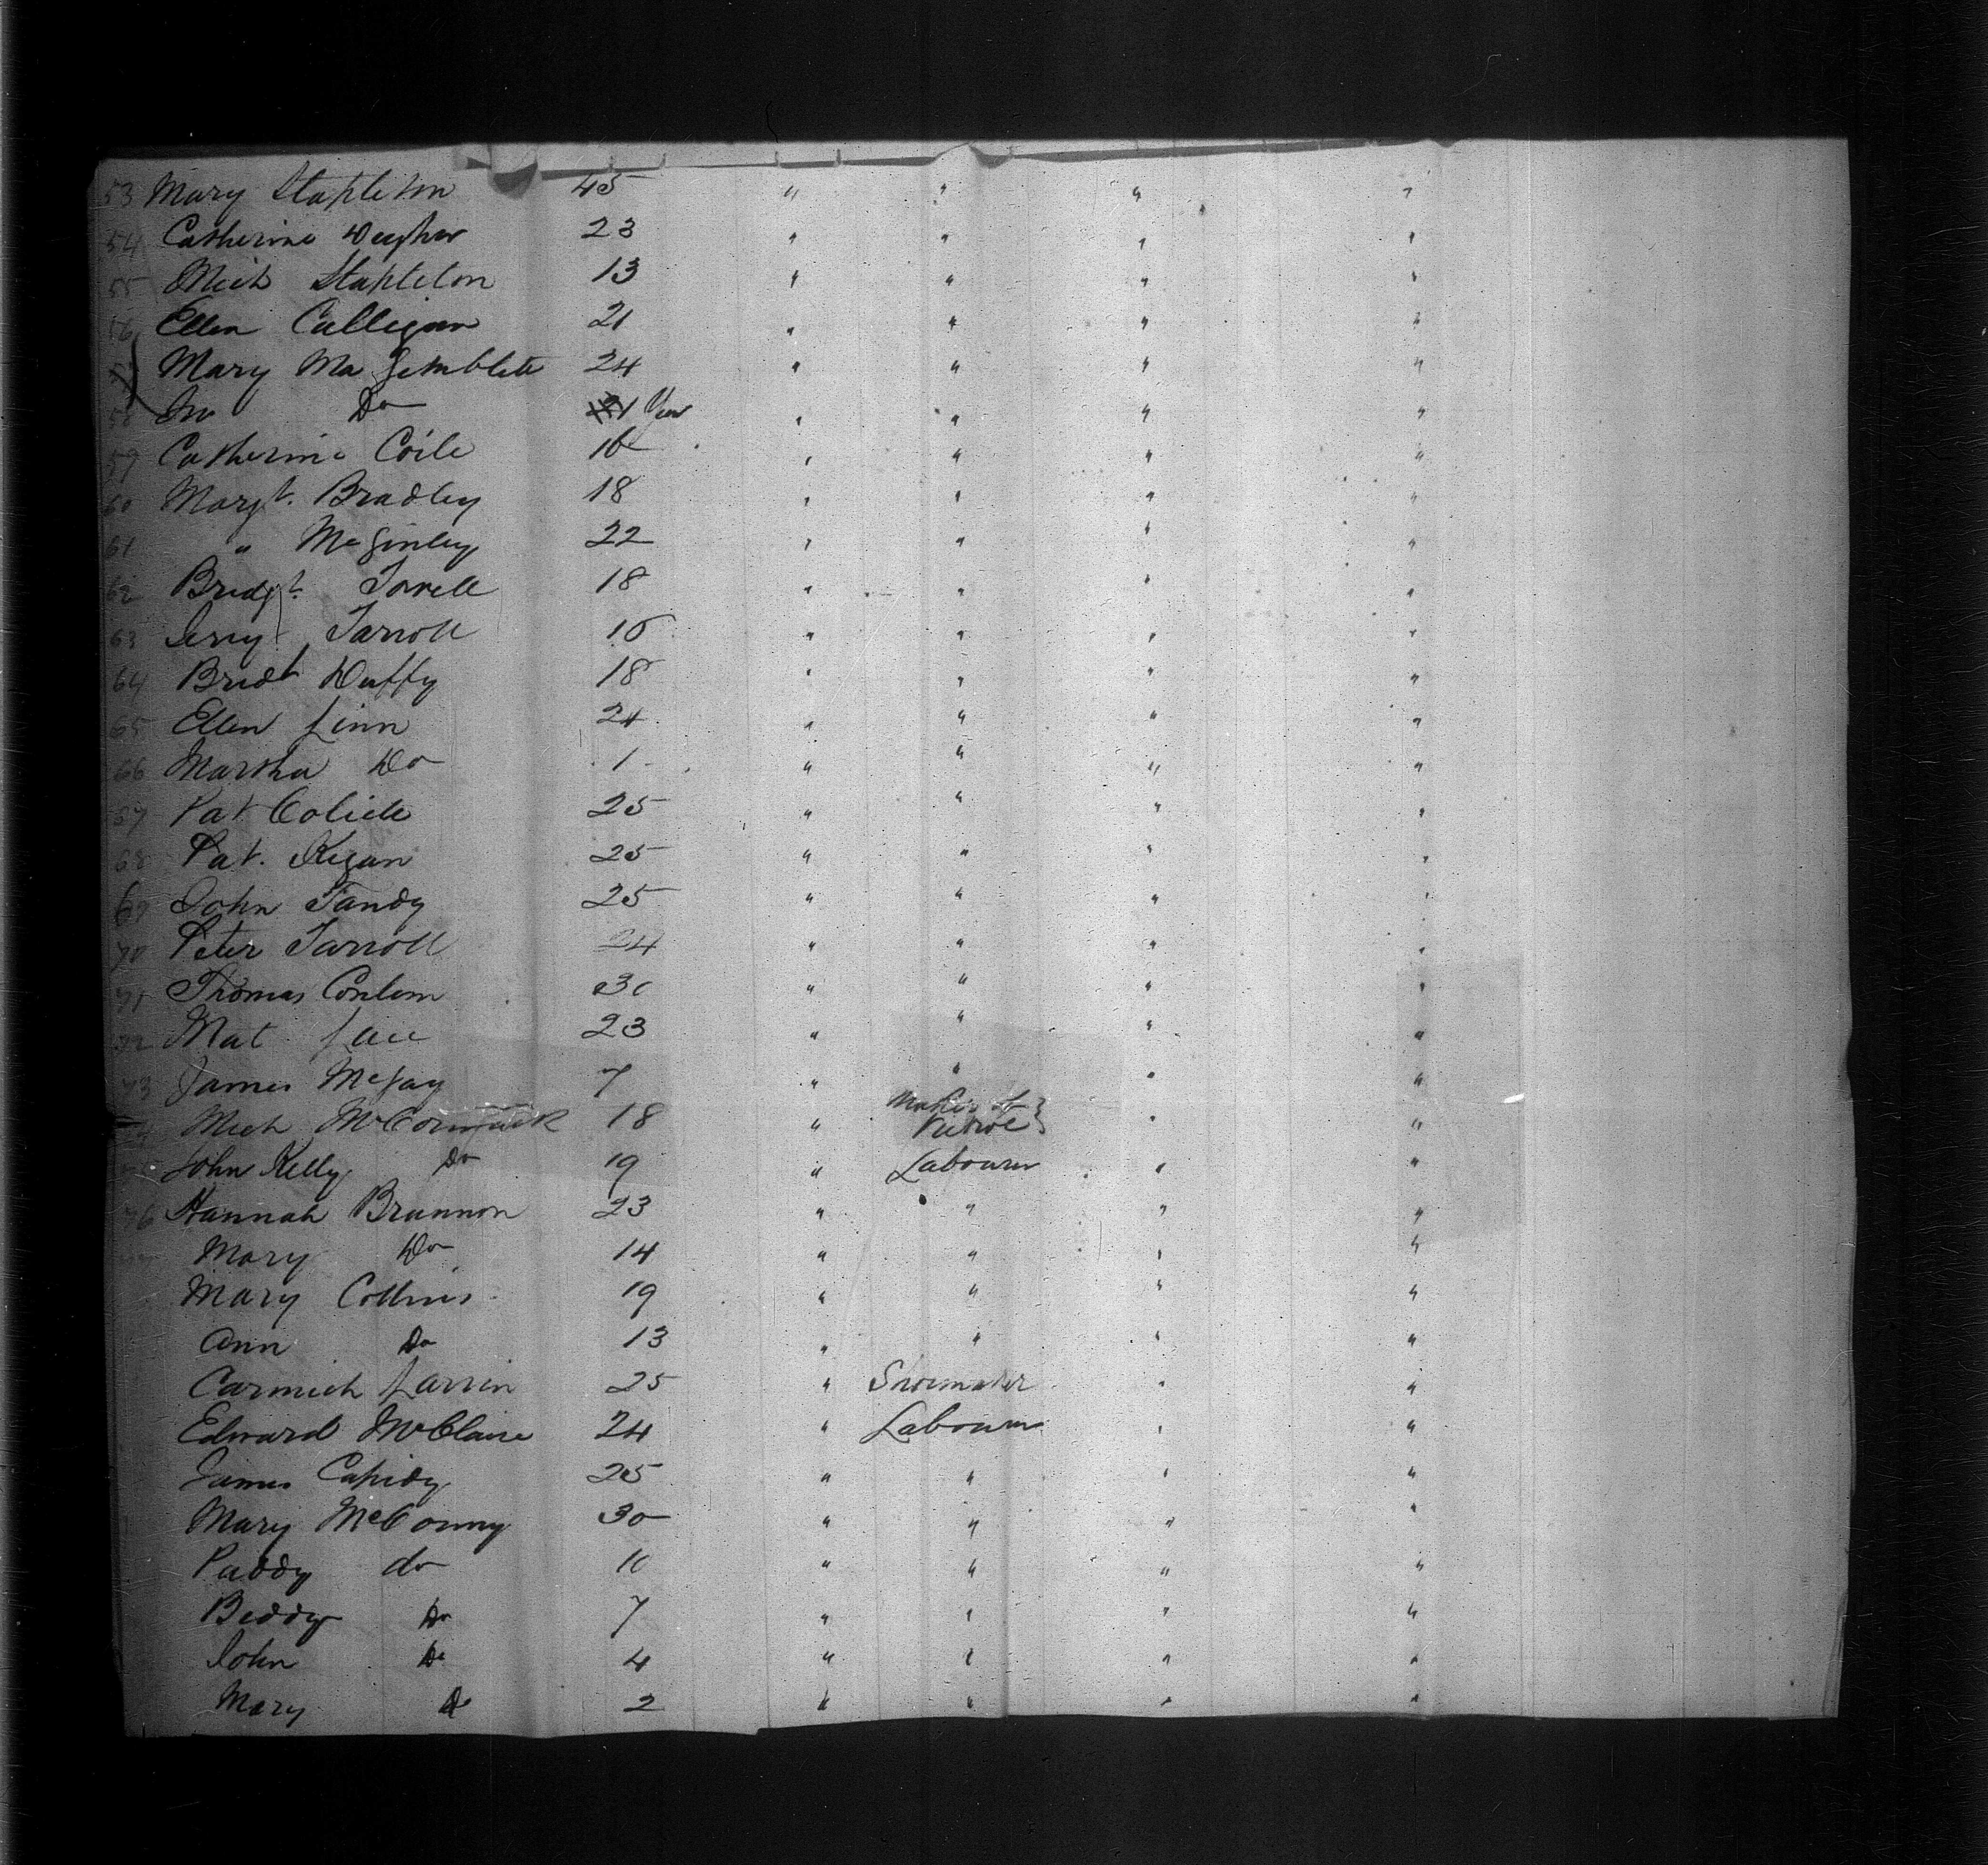 53 Mary Stapleton 45 " " " "
54 Catherine 23 " " " "
55 Mich Stapleton 13 " " " "
56 Ellen Calligan 21 " " " "
57 Mary Ma Gemblete 24 " " " "
58 Jno Do 1 Year " " " "
59 Catherine Coile 16 " " " "
60 Margt. Bradley 18 " " " "
61 " McGinley 22 " " " "
62 Bridgt. 18 " " " "
63 Farroll " " " "
64 Bridt Duffy 18 " " " "
65 Ellen Linn 24 " " " "
66 Martha Do 1 " " " "
67 Pat 25 " " " "
68 Pat. Kegan 25 " " " "
69 John Tandy 25 " " " "
70 Peter Farroll 24 " " " "
71 Thomas Conlon 30 " " " "
72 Mat 23 " " " "
73 James 7 " " " "
74 Mich McCormick 18 " " "
John Kelly Do 19 " Labourer " "
76 Hannah Brannon 23 " " " "
Mary Do 14 " " " "
Mary Collins 19 " " " "
Ann Do 13 " " " "
Carmich Larrin 25 " Shoemaker " "
Edward McClaire 24 " Labourer " "
James Capidy 25 " " " "
Mary McConny 30 " " " "
Paddy do 10 " " " "
Biddy Do 7 " " " "
John Do 4 " " " "
Mary Do 2 " " " "